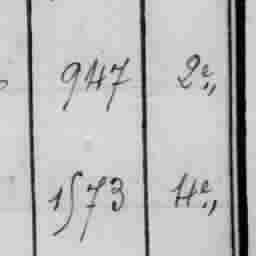 947 2e„
1573 4e„